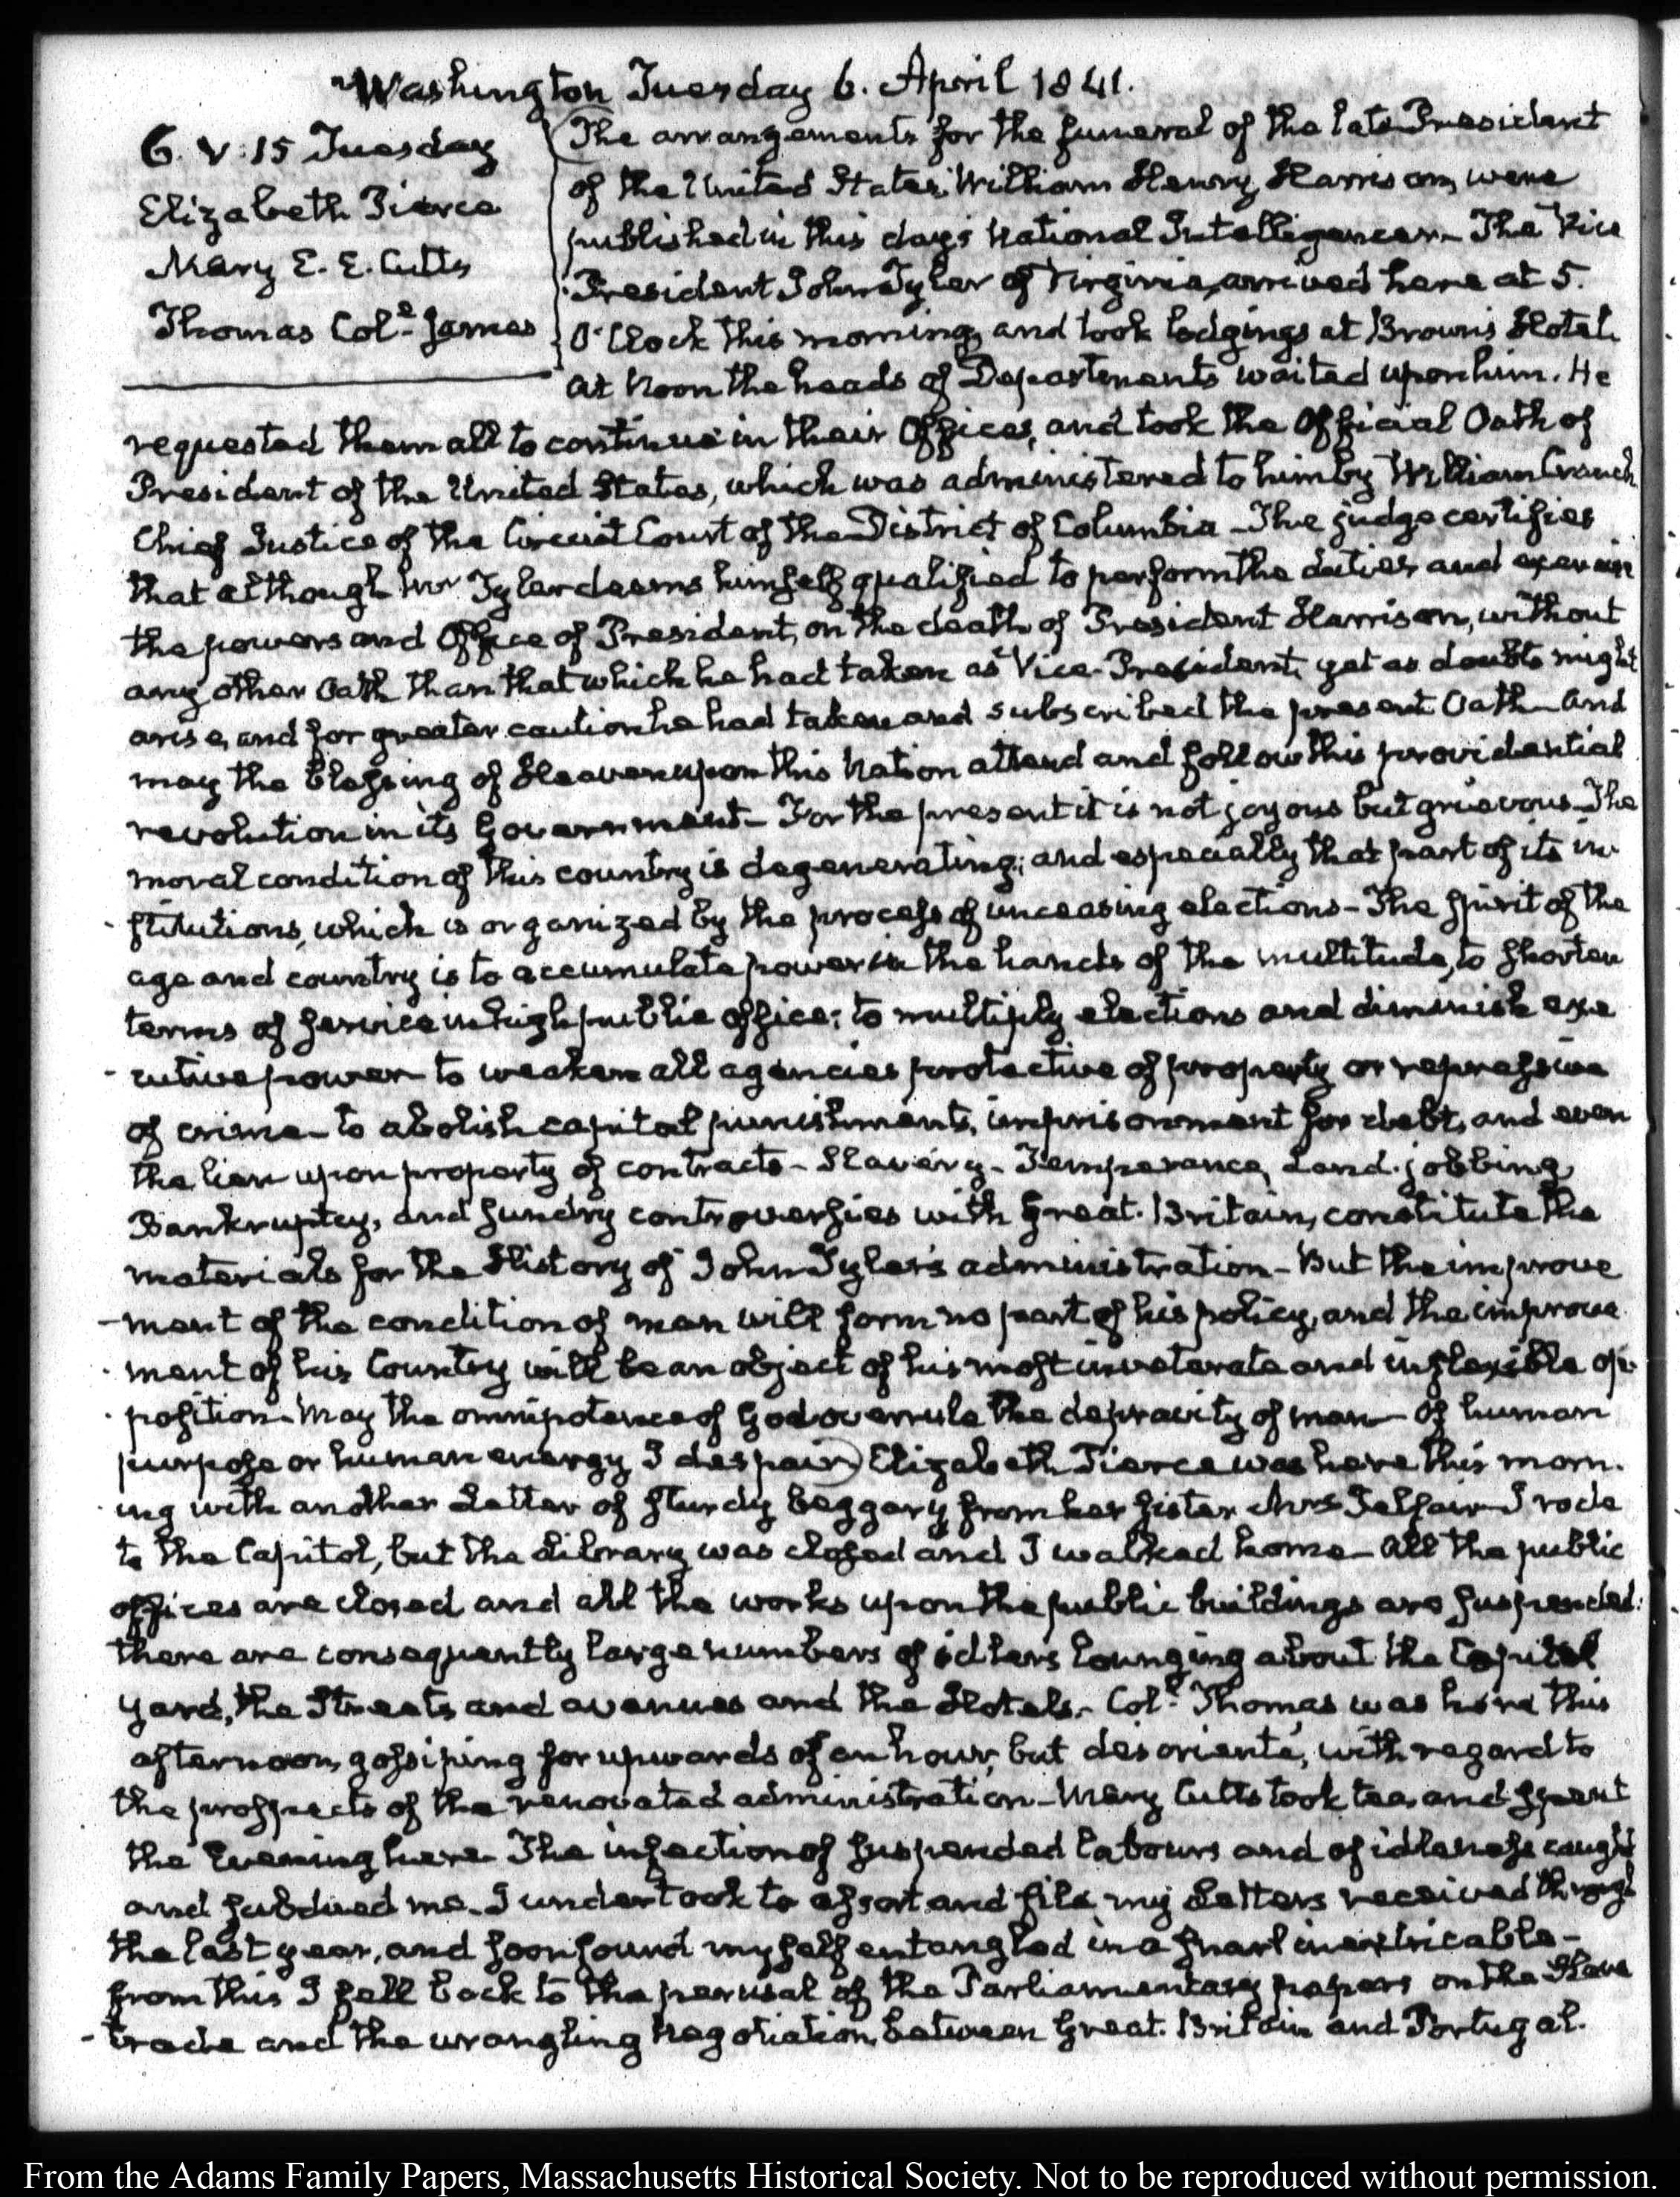 Washington Tuesday 6. April 1841.
6. V:15 Tuesday
Elizabeth Pierce
Mary E. E. Cutts
Thomas Col.l James
The arrangements for the funeral of the late President
of the United States, William Henry Harrison, were
published in this day's National Intelligencer. The Vice
President John Tyler of Virginia, arrived here at 5.
O'Clock this morning, and took lodgings at Brown's Hotel.
At Noon the heads of Departments waited upon him. He
requested them all to continue in their Offices, and took the Official Oath of
President of the United States, which was administered to him by William Cranch
Chief Justice of the Circuit Court of the District of Columbia - The judge certifies
that although Mr Tyler deems himself qualified to perform the duties and exercise
the powers and Office of President, on the death of President Harrison, without
any other Oath than that which he had taken as Vice-President, yet as doubts might
arise, and for greater caution he had taken and subscribed the present Oath - and
may the blessing of Heaven upon this Nation attend and follow this providential
revolution in its Government - For the present it is not joyous but grievous - The
moral condition of this country is degenerating; and especially that part of its in
stitutions, which is organized by the process of unceasing elections - The spirit of the
age and country is to accumulate power in the hands of the multitude, to shorten
terms of service in high public office; to multiply elections and diminish exe
-cutive power - to weaken all agencies protective of property or repressive
of crime - to abolish capital punishments, imprisonment for debt, and even
the lien upon property of contracts - Slavery - Temperance, Land-jobbing,
Bankruptcy, and sundry controversies with Great-Britain, constitute the
materials for the History of John Tyler's administration - But the improve
-ment of the condition of man will form no part of his policy, and the improve
-ment of his Country will be an object of his most inveterate and inflexible op-
position - May the omnipotence of God overrule the depravity of man - Of human
purpose or human energy, I despair) Elizabeth Pierce was here this morn-
ing with another Letter of sturdy beggary from her sister Mrs Telfair - I rode
to the Capitol, but the Library was closed and I walked home - All the public
offices are closed and all the works upon the public buildings are suspended:
there are consequently large numbers of idlers lounging about the Capitol
yard, the Streets and avenues and the Hotels - Col.l Thomas was here this
afternoon, gossiping for upwards of an hour, but desorienté, with regard to
the prospects of the renovated administration - Mary Cutts took tea, and spent
the Evening here - The infection of suspended labours and of idleness caught
and subdued me - I undertook to assort and file my Letters received through
the last year, and soon found myself entangled in a snarl inextricable -
from this I fell back to the perusal of the Parliamentary papers on the Slave
-trade and the wrangling Negotiation between Great-Britain and Portugal.
From the Adams Family Papers, Massachusetts Historical Society. Not to be reproduced without permission.